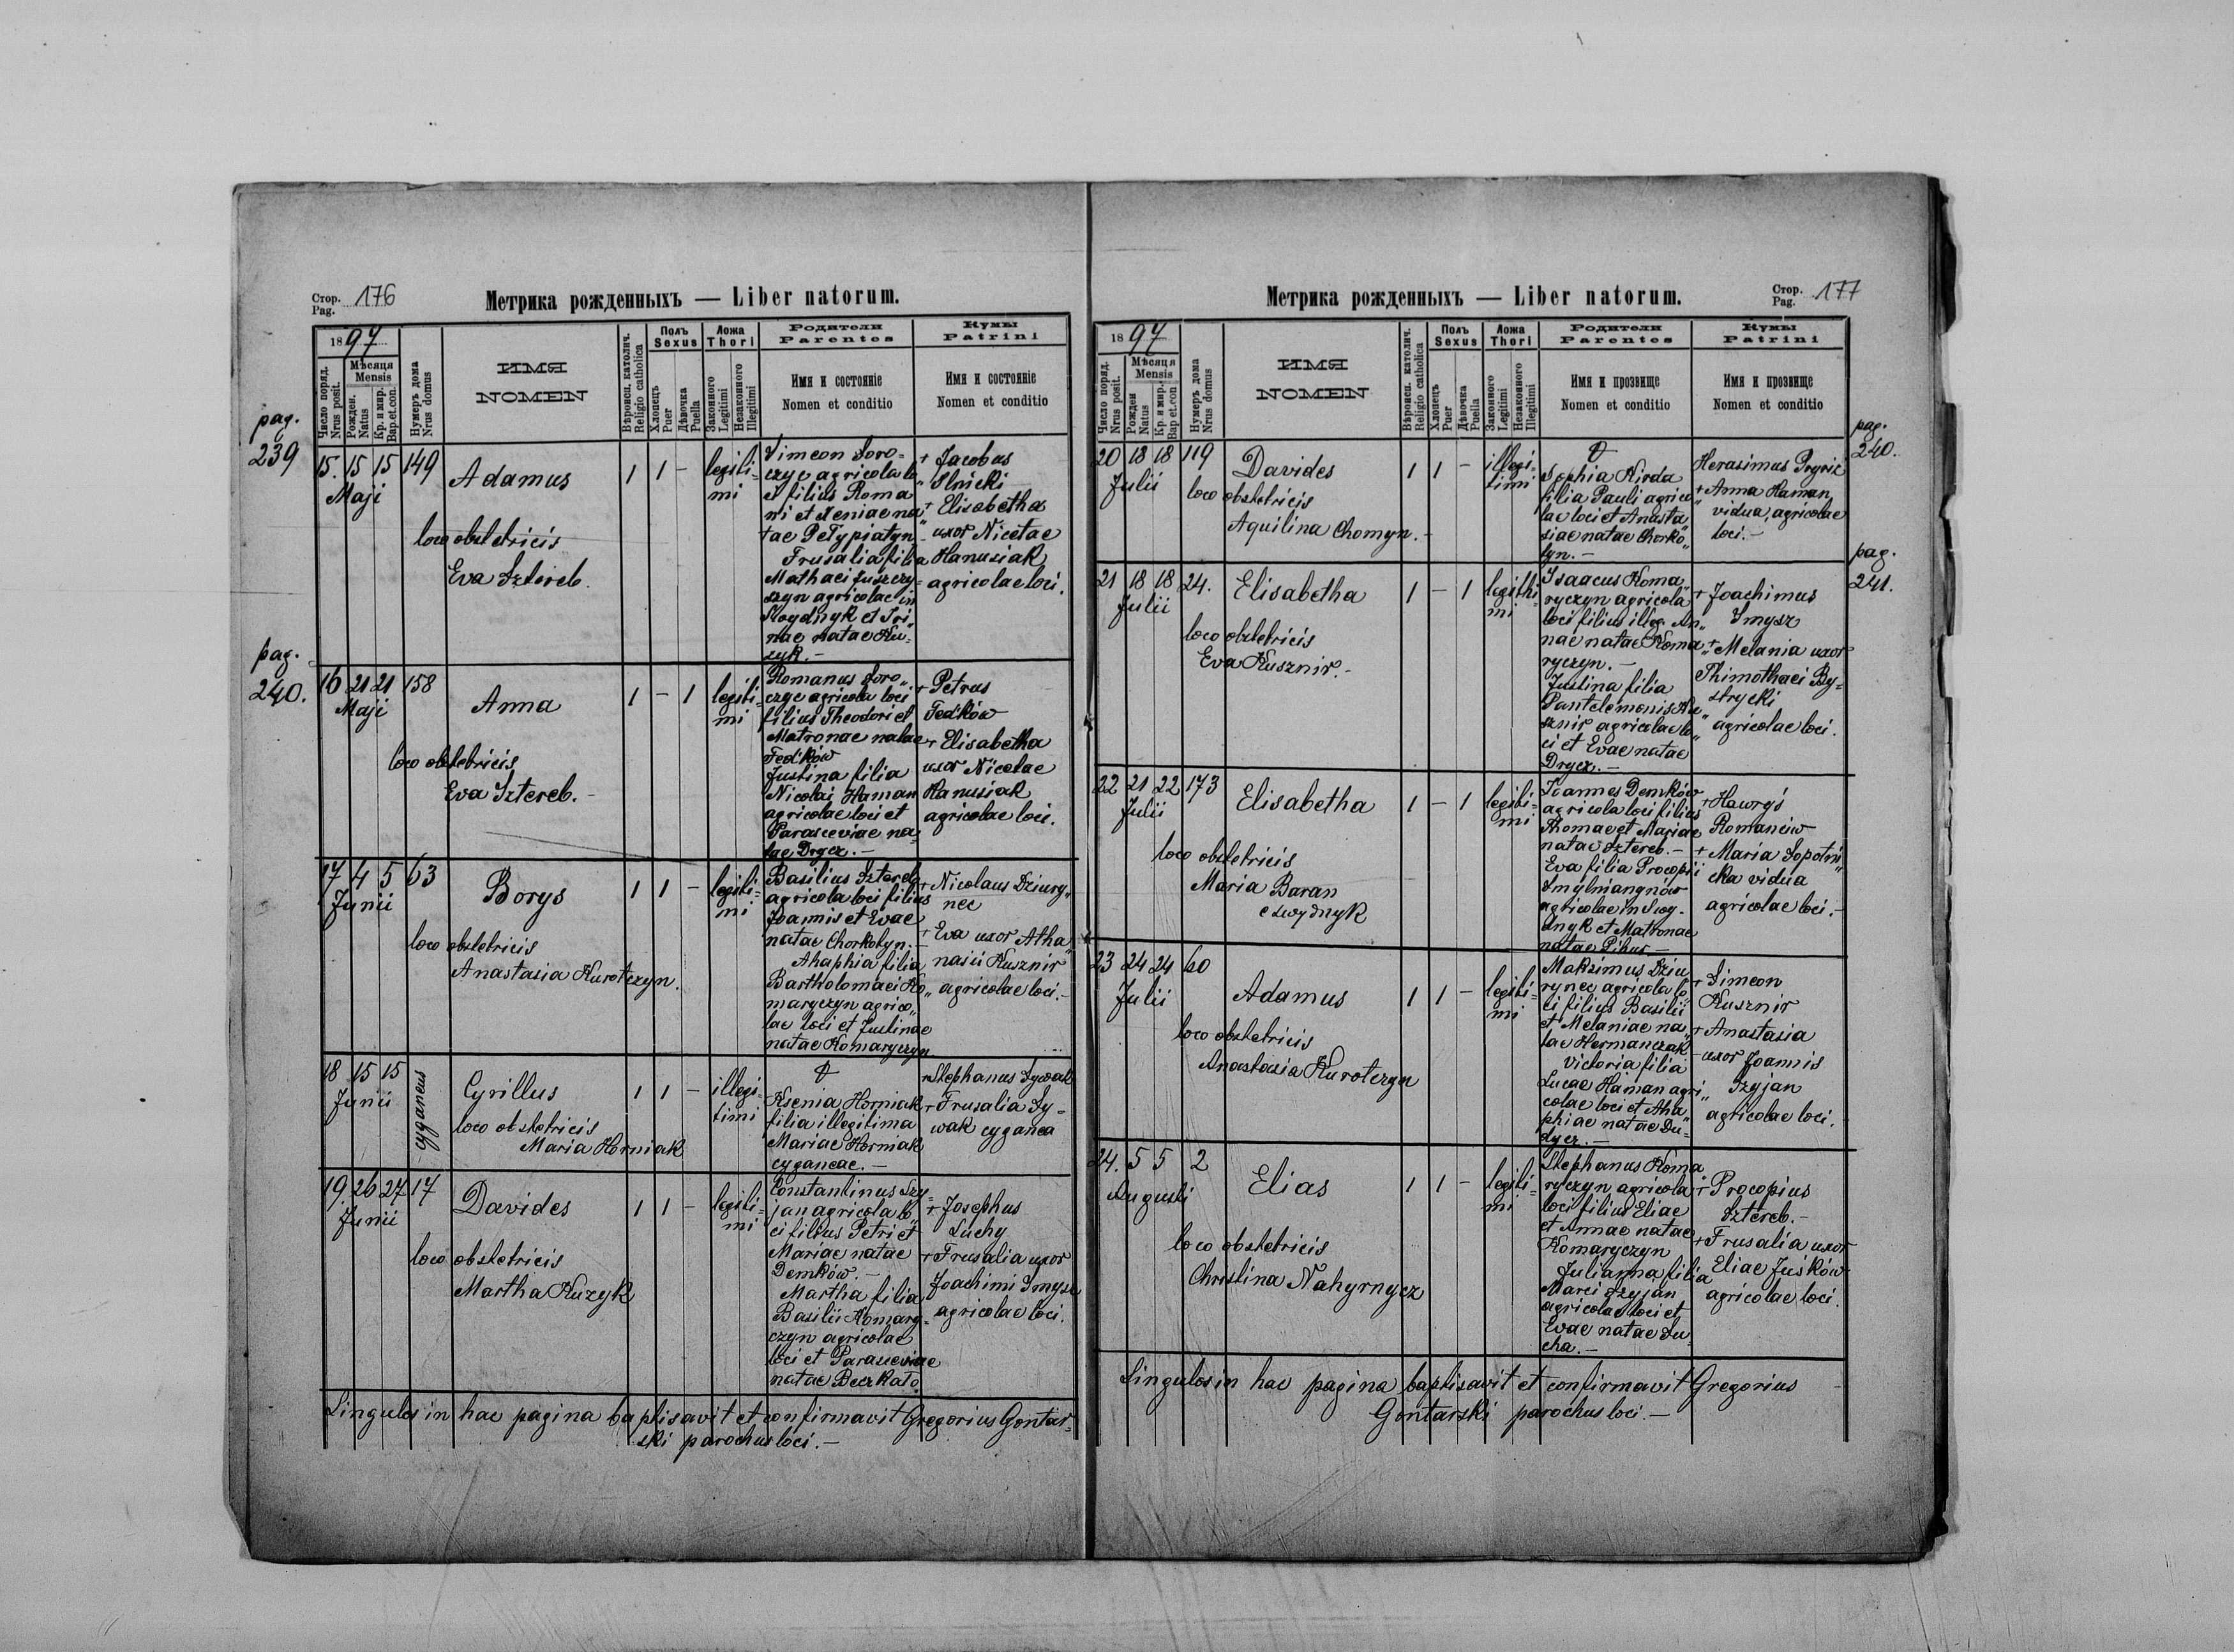 Стор. Pag. 176
Метрика рожденныхъ — Liber natorum.
1897
Число поряд. Nrus posit.
Мѣсяця Mensis
Рожден. Natus
Кр. и мир. Bap. et. con.
Нумеръ дома Nrus domus
ИМЯ
NOMEN
Вѣроисп. католич. Religio catholica
Полъ Sexus
Хлопецъ Puer
Дѣвочка Puella
Ложа Thori
Законного Legitimi
Незаконного Illegitimi
Родители Parentes
Имя и состояніе
Nomen et conditio
Кумы Patrini
Имя и состояніе
Nomen et conditio
pag.
239
15. 15 15 149
Maji
Adamus
loco obstetricis
Eva Sztereb.
1 1 –
legiti-
mi
Simeon Soro-
czyc agricola lo
ci filius Roma
ni et Xeniae na
tae Petypiatyn
Frusalia filia
Mathaei Juszczy-
szyn agricolae in
Swydnyk et Iri
nae natae Ku-
zyk. –
+ Jacobus
Slnicki
+ Elisabetha
uxor Nicetae
Hanusiak
agricolae loci.
pag.
240.
16 21 21 158
Maji
Anna
loco obstetricis
Eva Sztereb. –
1 – 1
legiti-
mi
Romanus Soro„
czyc agricola loci
filius Theodori et
Matronae natae
Fed'ków
Justina filia
Nicolai Haman
agricolae loci et
Parasceviae na
tae Drycz. –
+ Petrus
Fed'ków
+ Elisabetha
uxor Nicetae
Hanusiak
agricolae loci.
17 4 5 63
Junii
Borys
loco obstetricis
Anastasia Kurotczyn.
1 1 –
legiti-
mi
Basilius Sztereb
agricola loci filius
Joannis et Evae
natae Chorkotyn. –
Ahaphia filia
Bartholomaei Ko„
maryczyn agrico„
lae loci et Justinae
natae Komaryczyn
+ Nicolaus Dziury„
nec
+ Eva uxor Atha„
nasii Kusznir
agricolae loci. –
18 15 15
Junii
cyganeus
Cyrillus
loco obstetricis
Maria Horniak
1 1 –
illegi-
timi
Ksenia Horniak
filia illegitima
Mariae Horniak
cyganeae. –
+Stephanus Sywak
+ Frusalia Sy-
wak cyganea
19. 26 27 17
Junii
Davides
loco obstetricis
Martha Kuzyk
1 1 –
legiti-
mi
Constantinus Szy-
jan agricola lo
ci filius Petri et
Mariae natae
Demków. –
Martha filia
Basilii Komary-
czyn agricolae
loci et Parasceviae
natae Beczkało
+ Josephus
Luchy
+ Frusalia uxor
Joachimi Smysz
agricolae loci.
Singulos in hac pagina baptisavit et confirmavit Gregorius Gontar-
ski parochus loci. –
Метрика рожденныхъ — Liber natorum.
Стор. Pag. 177
1897
Число поряд. Nrus posit.
Мѣсяця Mensis
Рожден Natus
Кр. и мир. Bap et.con
Нумеръ дома Nrus domus
ИМЯ
NOMEN
Вѣроисп. католич. Religio catholica
Полъ Sexus
Хлопецъ Puer
Дѣвочка Puella
Ложа Thori
Законного Legitimi
Незаконного Illegitimi
Родители Parentes
Имя и прозвище
Nomen et conditio
Кумы Patrini
Имя и прозвище
Nomen et conditio
pag.
240.
20 18 18 119
Julii
Davides
loco obstetricis
Aquilina Chomyn. –
1 1 –
illegi-
timi
Sophia Kirda
filia Pauli agrico
lae loci et Anasta
siae natae Chorko„
tyn. –
Herasimus Pryriz
+ Anna Haman
vidua, agricolae
loci. –
pag.
241.
21 18 18 24.
Julii
Elisabetha
loco obstetricis
Eva Kusznir. –
1 – 1
legithi-
mi
Isaacus Koma„
ryczyn agricola
loci filius illeg. An„
nae natae Koma„
ryczyn. –
Justina filia
Pantelemonis Ku„
sznir agricolae lo„
ci et Evae natae
Drycz. –
+ Joachimus
Smysz
+ Melania uxor
Thimothaei By-
strycki
agricolae loci.
22 21 22 173
Julii
Elisabetha
loco obstetricis
Maria Baran
e Swydnyk
1 – 1
legiti-
mi
Joannes Demków
agricola loci filius
Thomae et Mariae
natae Sztereb. –
Eva filia Procopii
Smylniangnów
agricolae in Swy-
dnyk et Matronae
natae Pihus –
+ Hawryś
Romaneiw
+ Maria Sopotni„
cka vidua
agricolae loci. –
23 24 24 60
Julii
Adamus
loco obstetricis
Anastasia Kurotczyn
1 1 –
legiti-
mi
Maksimus Dziu
rynec agricola lo„
ci filius Basilii
et Melaniae na„
tae Hermanczak
Victoria filia
Lucae Haman agri„
colae loci et Aha„
phiae natae Du-
dycz. –
+ Simeon
Kusznir
+ Anastasia
uxor Joannis
Szyjan
agricolae loci.
24. 5 5 2
Augusti
Elias
loco obstetricis
Christina Nahyrnycz
1 1 –
legiti-
mi
Stephanus Koma
ryczyn agricola
loci filius Eliae
et Annae natae
Komaryczyn
Julianna filia
Marci Szyjan
agricolae loci et
Evae natae Lu-
cha. –
+ Procopius
Sztereb. –
+ Frusalia uxor
Eliae Juśków
agricolae loci.
Singulos in hac pagina baptisavit et confirmavit Gregorius
Gontarski parochus loci. –